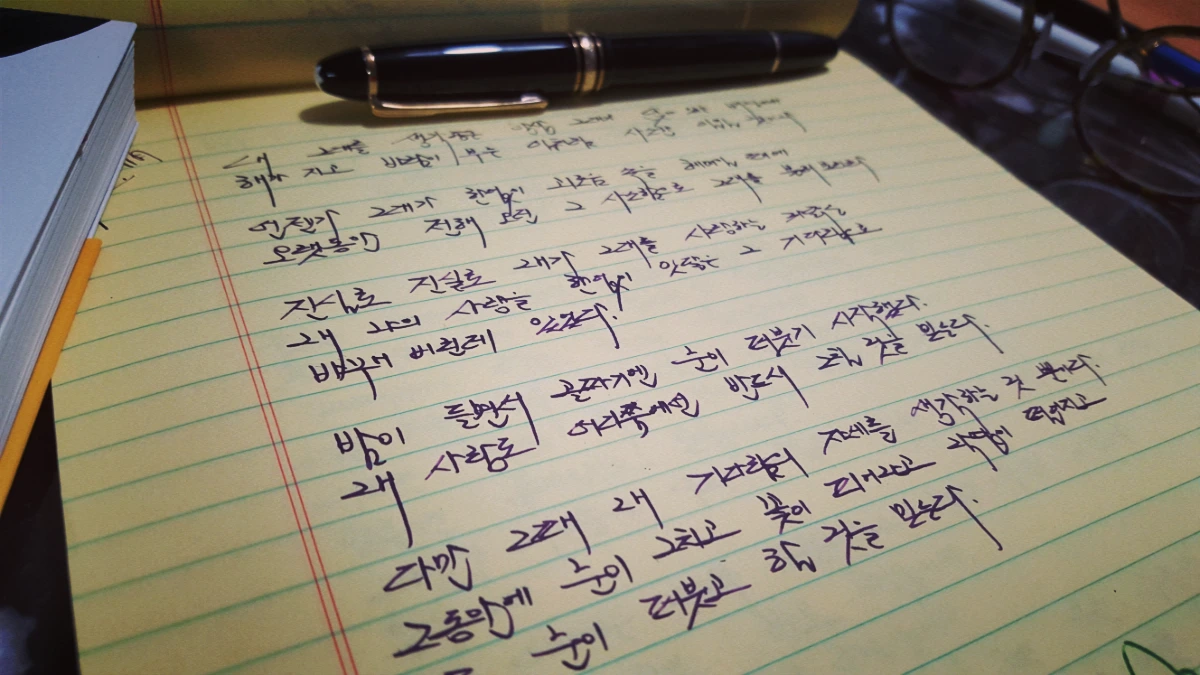 내 그대를 생각함은 항상 그대가 앉아 있는 배경에서
해가 지고 바람이 부는 일처럼 사소한 일일 것이나
언젠가 그대가 한없이 괴로움 속을 헤매일 때에
오랫동안 전해 오던 그 사소함으로 그대를 불러 보리라
진실로 진실로 내가 그대를 사랑하는 까닭은
내 나의 사랑을 한없이 잇닿은 그 기다림으로
바꾸어 버린데 있었다.
밤이 들면서 골짜기엔 눈이 퍼붓기 시작했다.
내 사랑도 어디쯤에선 반드시 그칠 것을 믿는다.
다만 그때 내 기다림의 자세를 생각하는 것 뿐이다.
그동안에 눈이 그치고 꽃이 피어나고 낙엽이 떨어지고
눈이 퍼붓고 할 것을 믿는다.